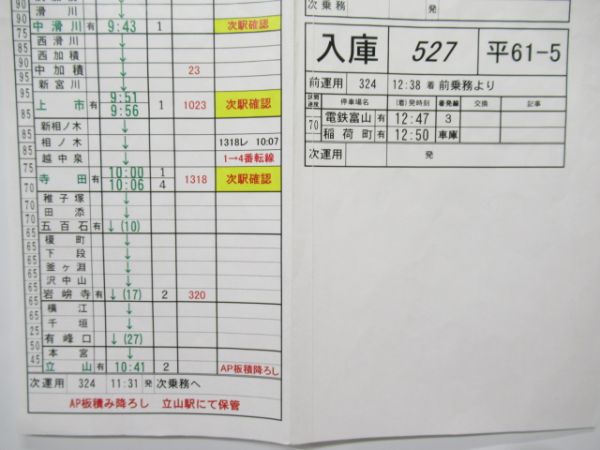 90 滑川
90 中滑川 有 9:43 1 次駅確認
西滑川
西加積
95 中加積 23
新宮川
95 上市 有 9:51 9:56 1 1023 次駅確認
85 新相ノ木
85 相ノ木 1318レ 10:07
85 越中泉 1→4番転線
75 寺田 有 10:00 10:06 1 4 1318 次駅確認
70 稚子塚
70 田添
70 五百石 有 ↓(10)
65 榎町
65 下段
65 釜ヶ淵
65 沢中山
65 岩峅寺 有 ↓(17) 2 320
65 横江
65 千垣
65 有峰口 有 ↓(27)
50 本宮
45 立山 有 10:41 2 AP板積降ろし
次運用 324 11:31 発 次乗務へ
AP板積み降ろし 立山駅にて保管
次乗務 発
入庫 527 平61-5
前運用 324 12:38 着 前乗務より
停車場名 (着)発時刻 着発線 交換 記事
70 電鉄富山 有 12:47 3
稲荷町 有 12:50 車庫
次運用 発